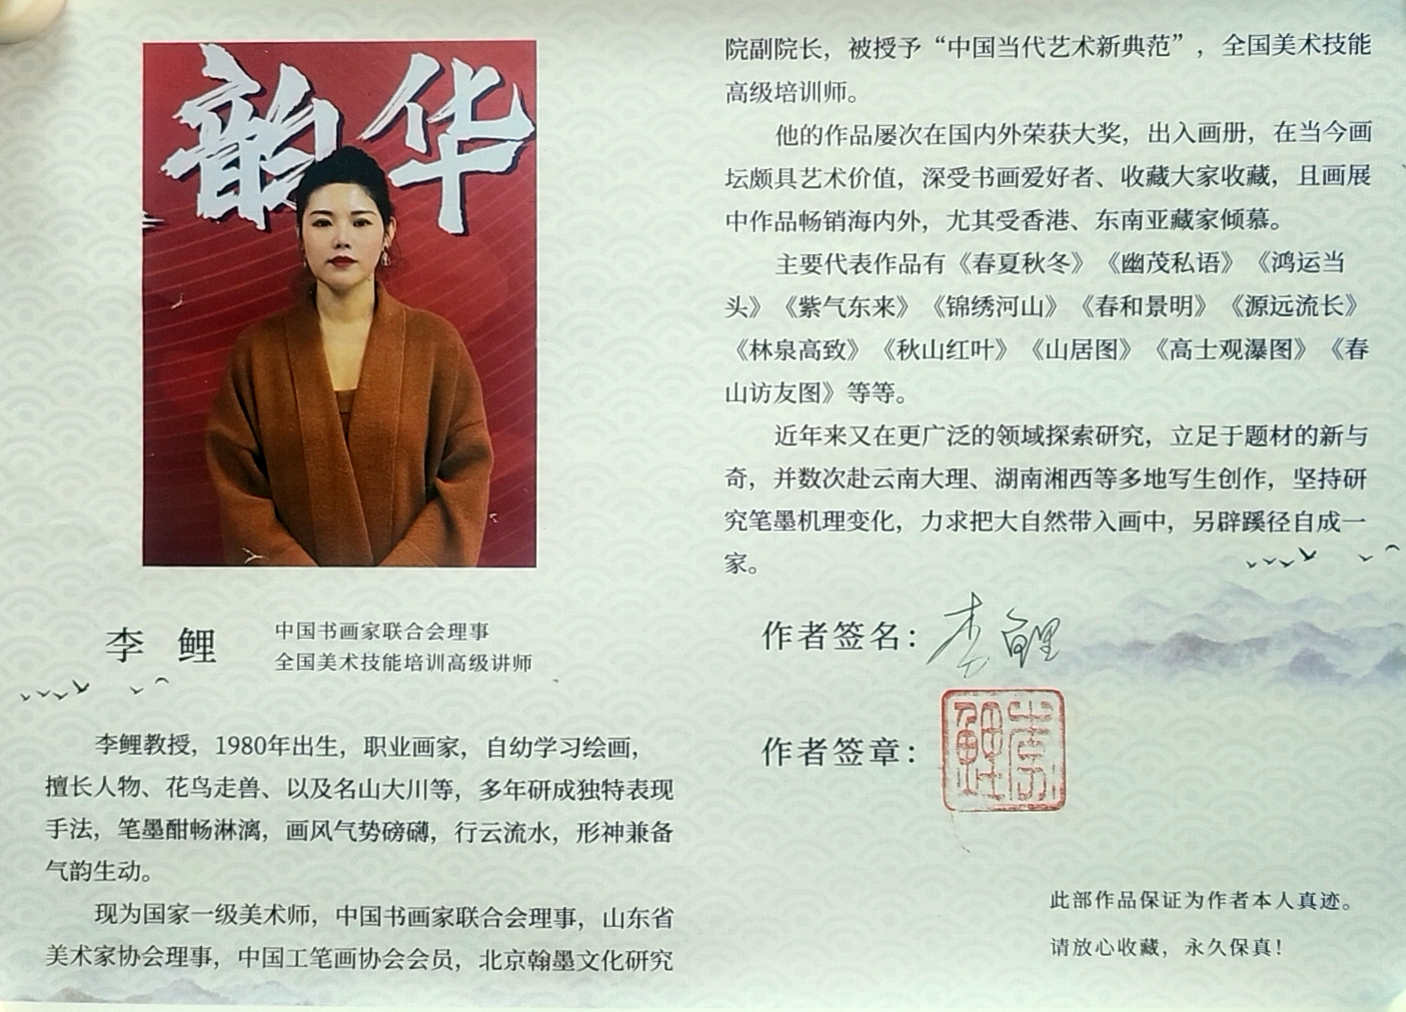 韵华
李鲤
中国书画家联合会理事
全国美术技能培训高级讲师
李鲤教授，1980年出生，职业画家，自幼学习绘画，
擅长人物、花鸟走兽、以及名山大川等，多年研成独特表现
手法，笔墨酣畅淋漓，画风气势磅礴，行云流水，形神兼备
气韵生动。
现为国家一级美术师，中国书画家联合会理事，山东省
美术家协会理事，中国工笔画协会会员，北京翰墨文化研究
院副院长，被授予“中国当代艺术新典范”，全国美术技能
高级培训师。
他的作品屡次在国内外荣获大奖，出入画册，在当今画
坛颇具艺术价值，深受书画爱好者、收藏大家收藏，且画展
中作品畅销海内外，尤其受香港、东南亚藏家倾慕。
主要代表作品有《春夏秋冬》《幽茂私语》《鸿运当
头》《紫气东来》《锦绣河山》《春和景明》《源远流长》
《林泉高致》《秋山红叶》《山居图》《高士观瀑图》《春
山访友图》等等。
近年来又在更广泛的领域探索研究，立足于题材的新与
奇，并数次赴云南大理、湖南湘西等多地写生创作，坚持研
究笔墨机理变化，力求把大自然带入画中，另辟蹊径自成一
家。
作者签名：李鲤
作者签章：李鲤
此部作品保证为作者本人真迹。
请放心收藏，永久保真！